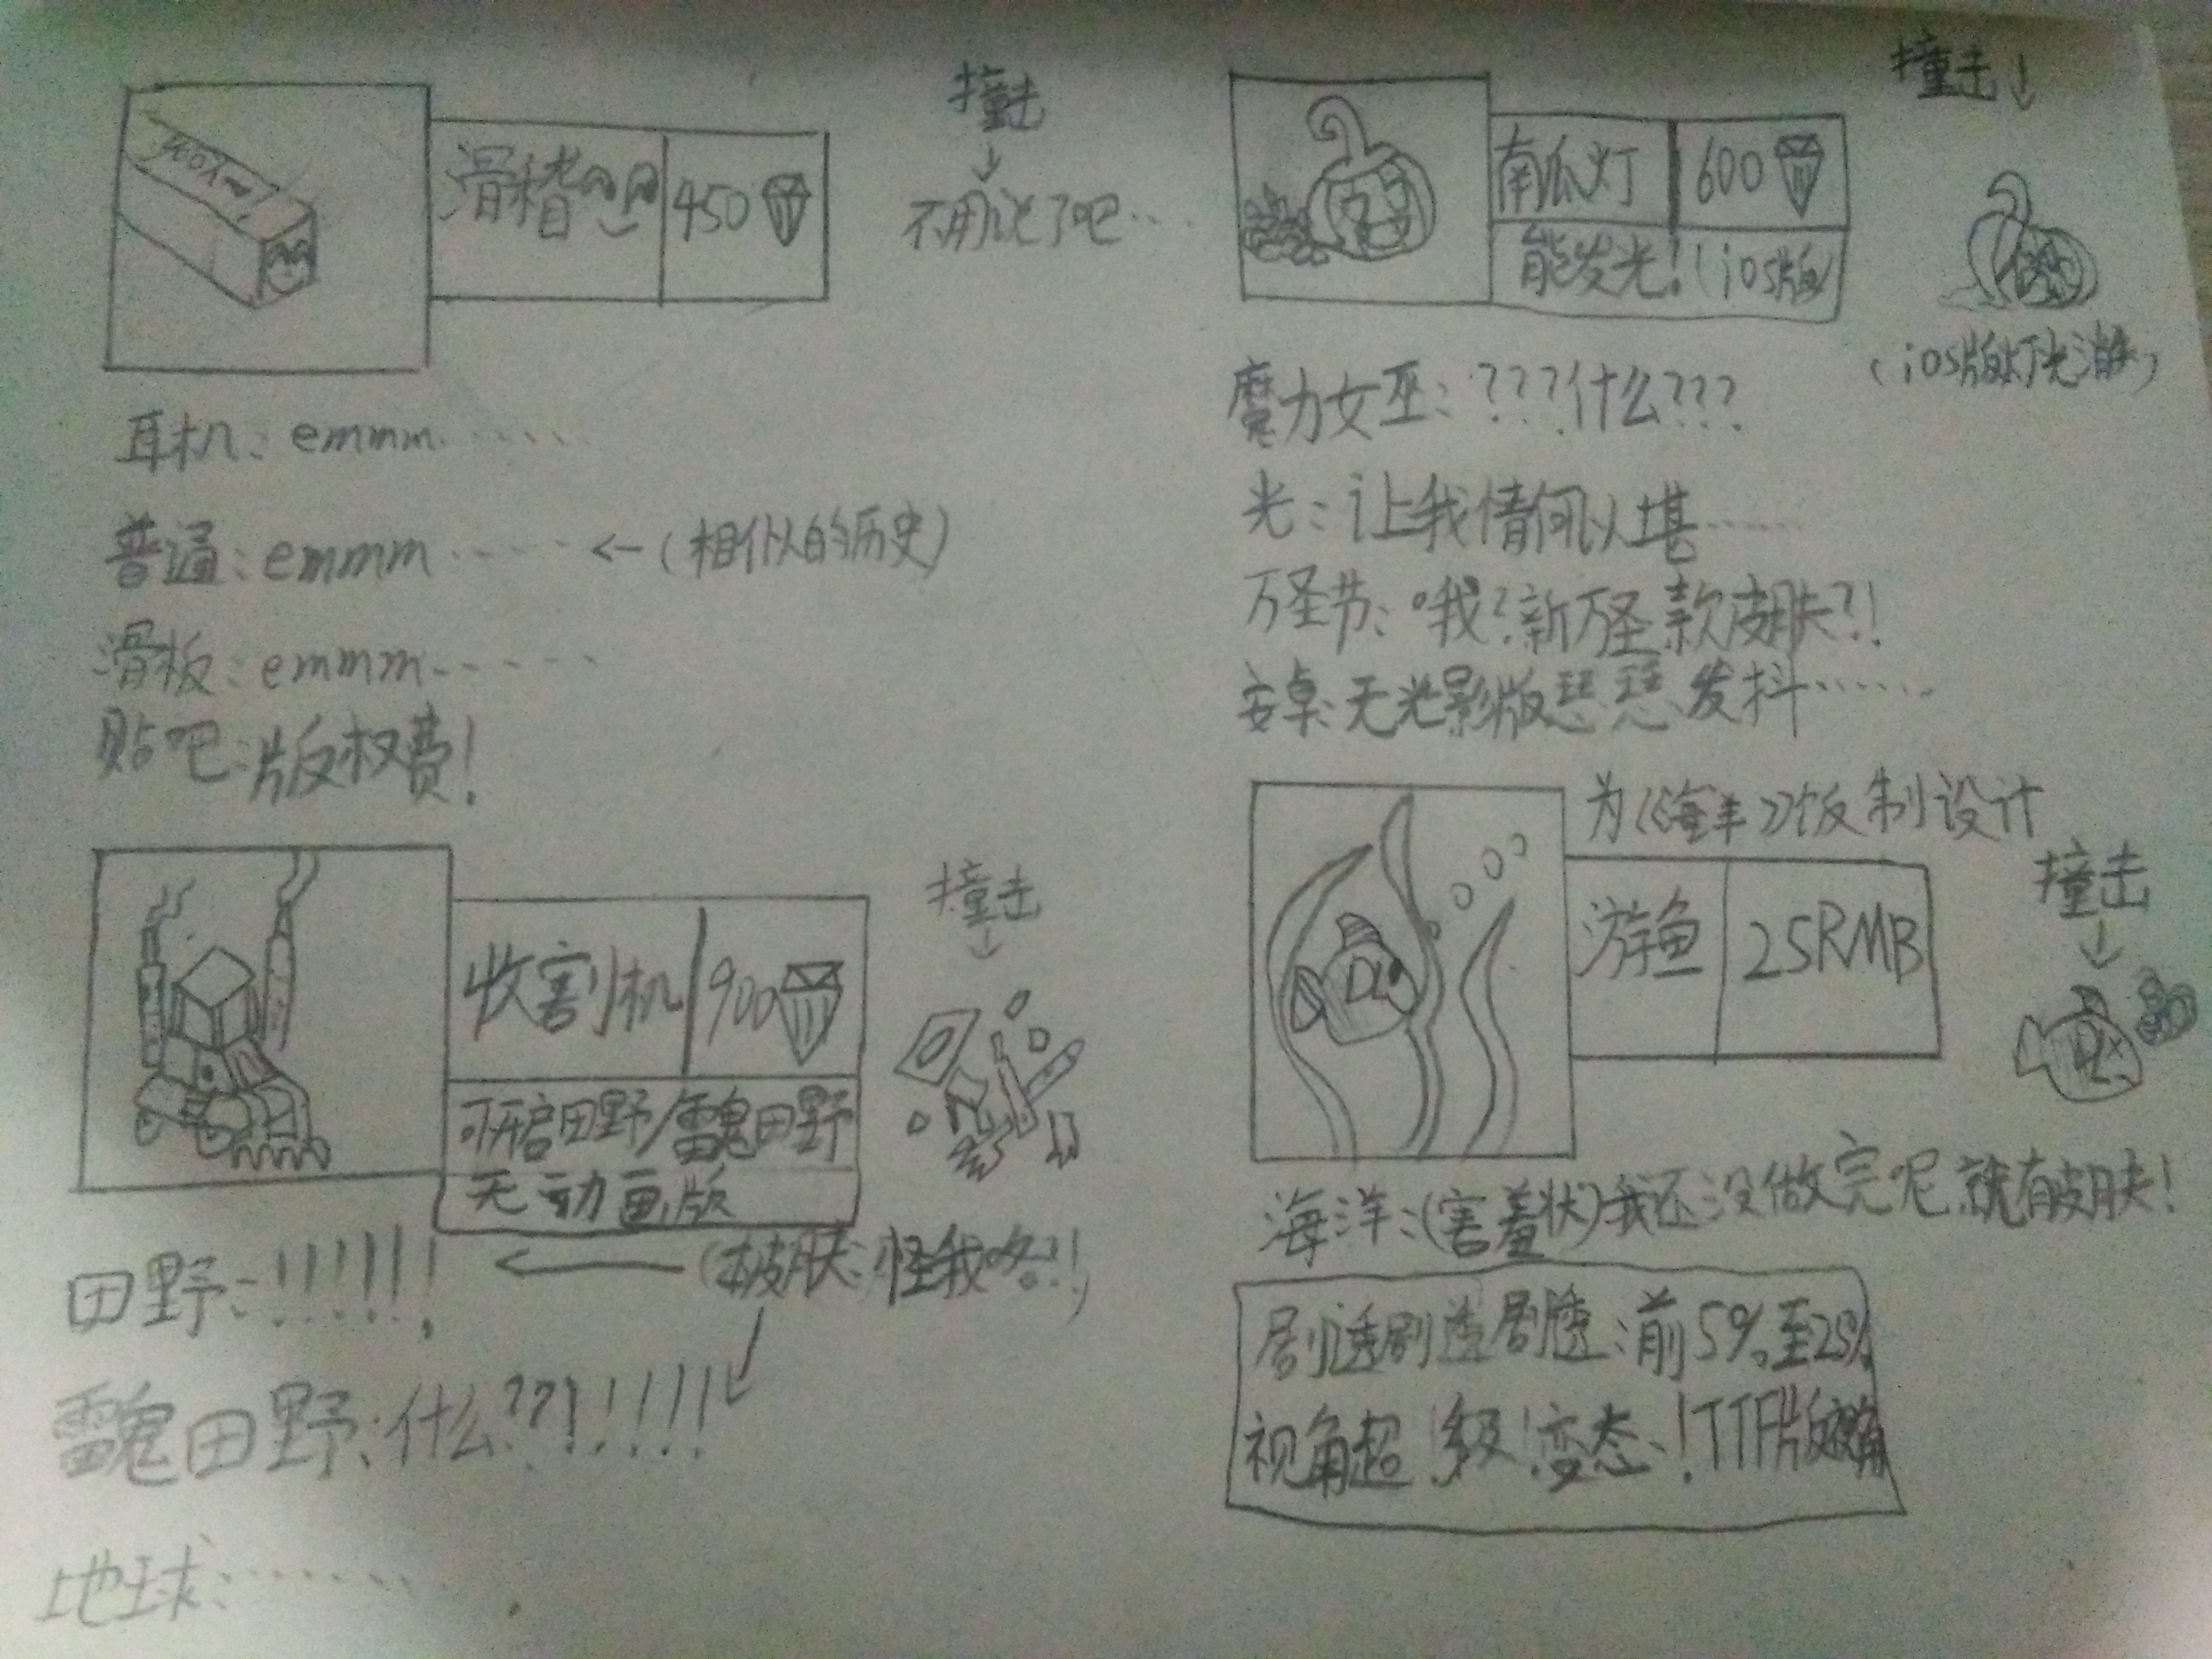 撞击
滑稽
450
不用说了吧……
耳机：emmm……
普通：emmm……←（相似的历史）
滑板：emmm……
贴吧：版权费！
撞击↓
南瓜灯
600
能发光！（ios版）
（ios版灯光消失）
魔力女巫：???什么???
光：让我情何以堪……
万圣节：哦？新万圣款皮肤?!
安卓：无光影版瑟瑟发抖……
撞击
收割机
900
可开启田野/雷鬼田野
无动画版
田野：!!!!!!
（本皮肤：怪我咯?!）
雷鬼田野：什么??!!!!!
地球：……
为《海洋》饭制设计
撞击
游鱼
25RMB
DL
DL
海洋：（害羞状）我还没做完呢就有皮肤！
剧透剧透剧透：前5%至25%
视角超！级！变态！TTF版视角